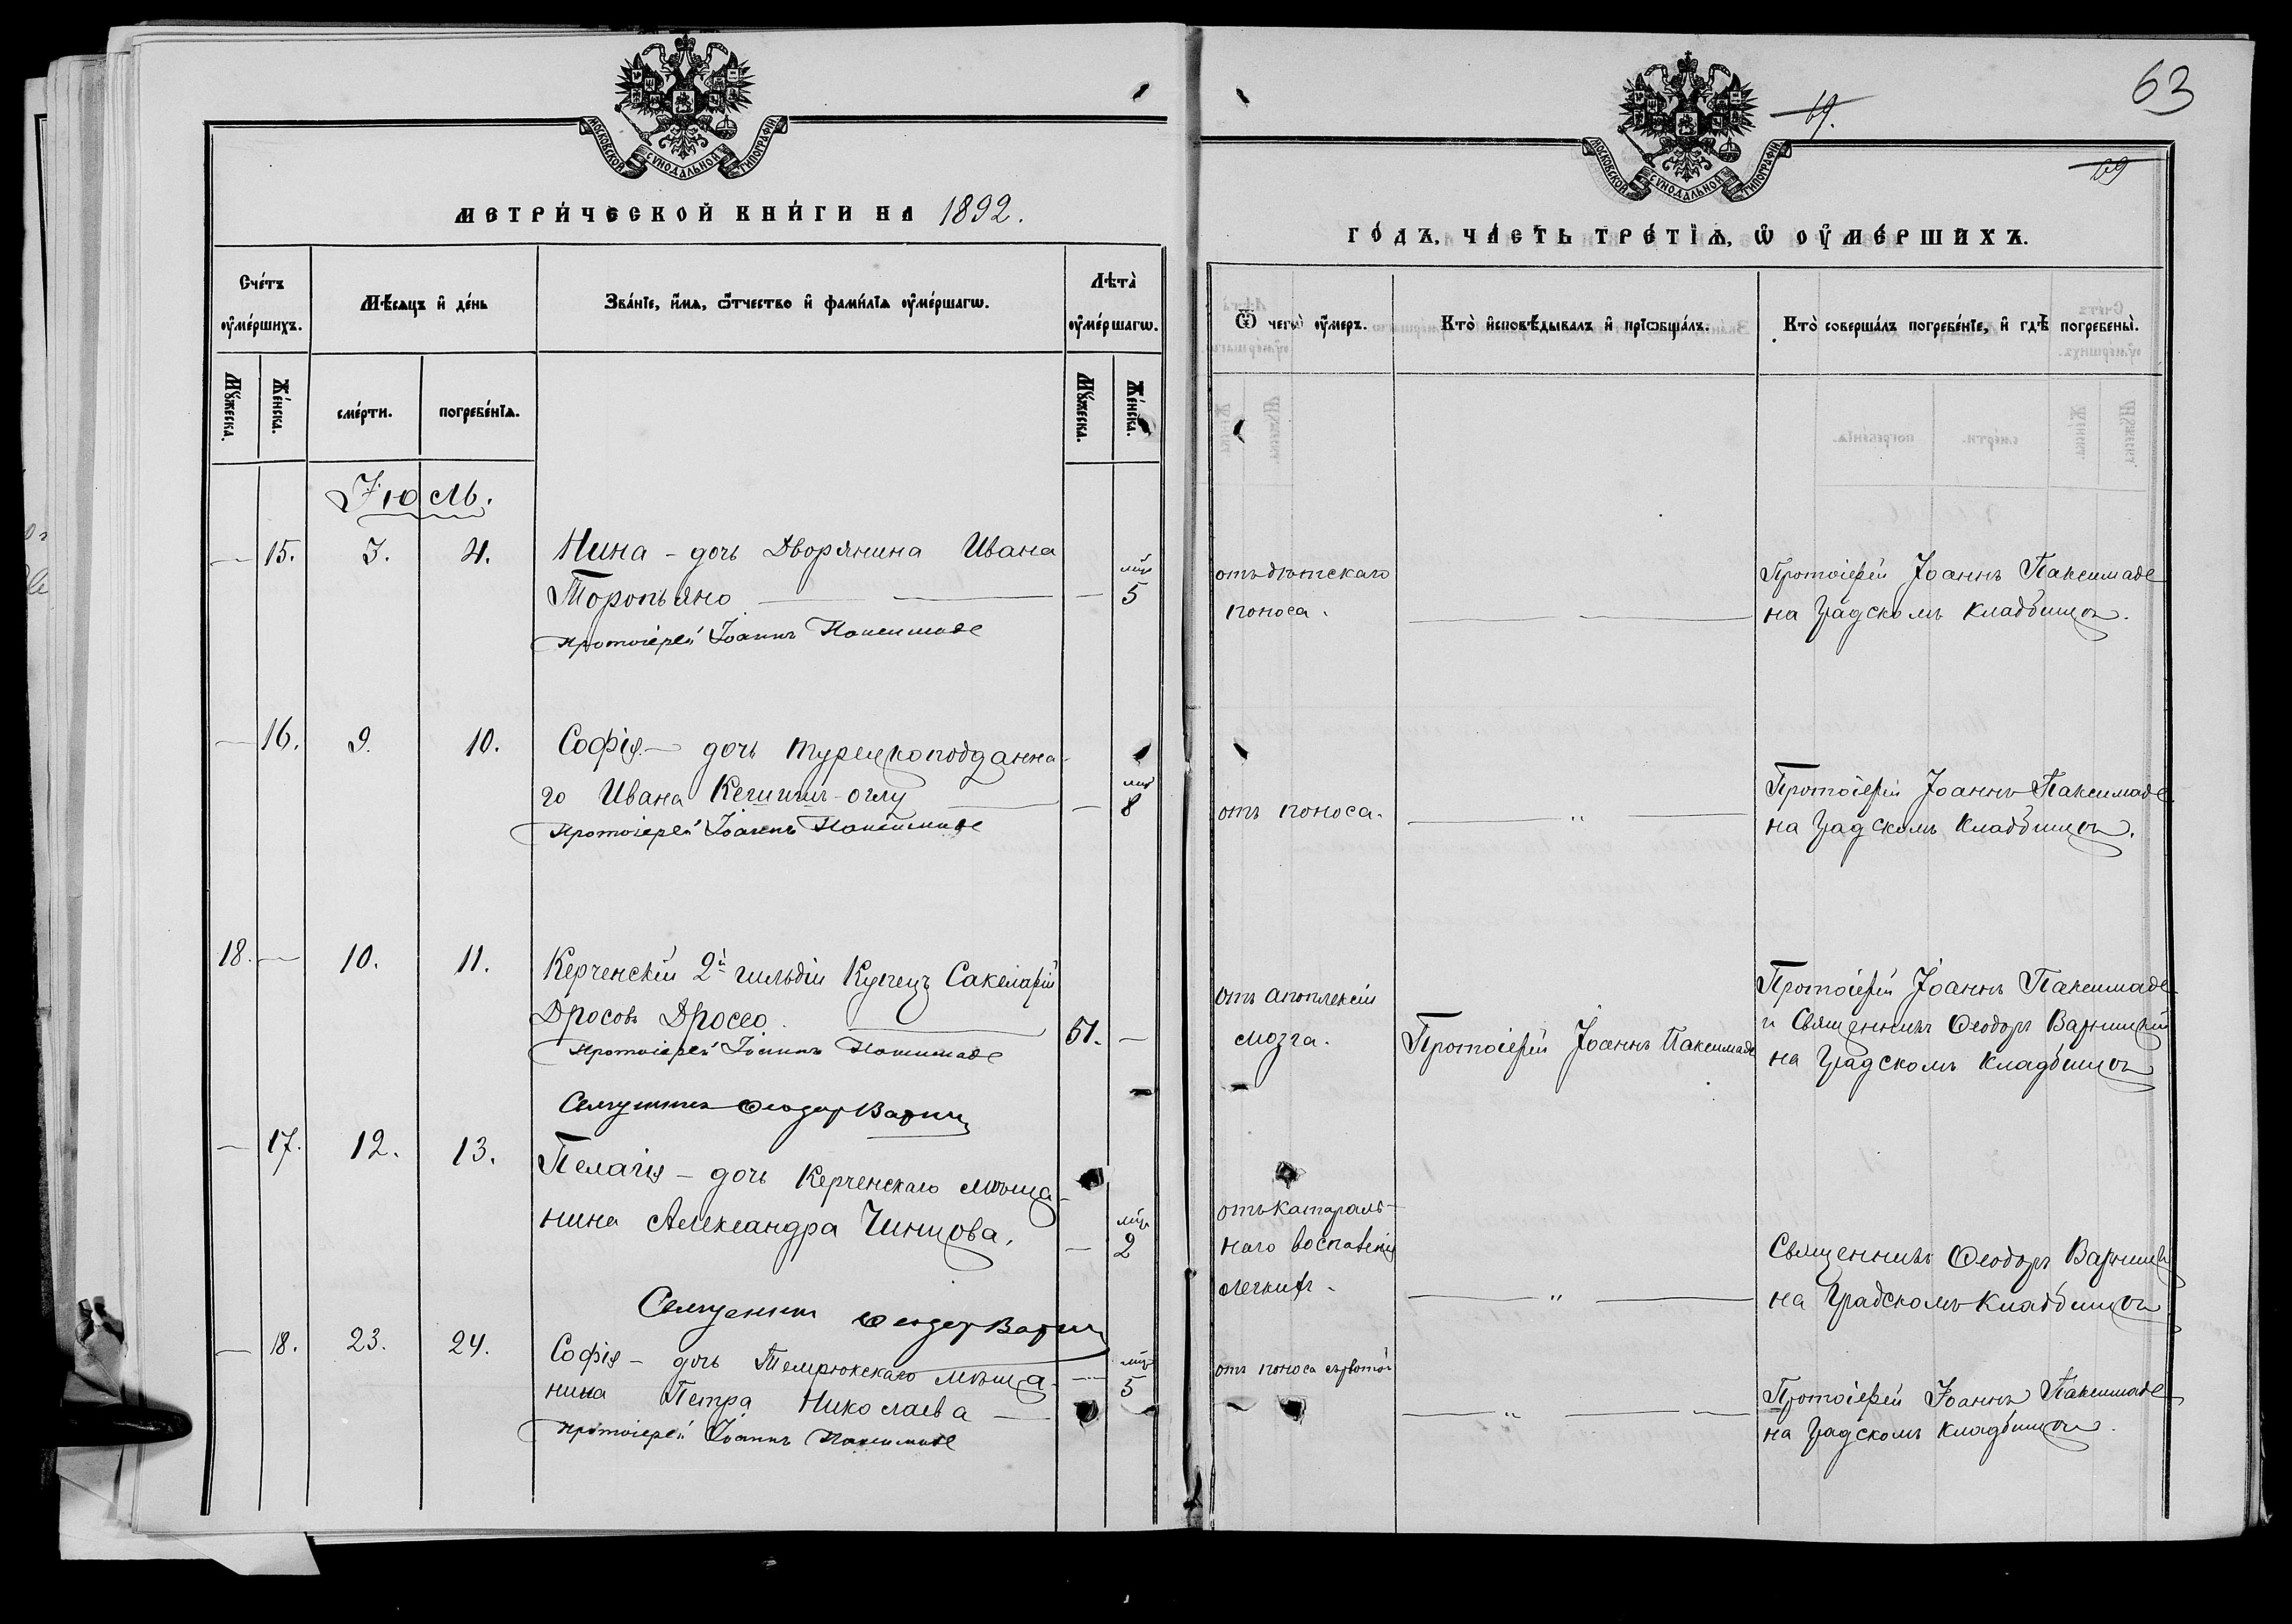 МОСКОВСКОЙ СѴНОДАЛЬНОЙ ТИПОГРАФІИ
МЕТРИ́ЧЕСКОЙ КНИ́ГИ НА 1892.
Сче́тъ ᲂу҆ме́ршихъ.
Мѣ́сѧцъ и҆ де́нь
Зва́нїе, и҆́мѧ, ѻ҆́тчество и҆ фами́лїѧ ᲂу҆ме́ршагѡ.
Лѣта̀ ᲂу҆ме́ршагѡ.
Мꙋ́жеска.
Же́нска.
сме́рти.
погребе́нїѧ.
Мꙋ́жеска.
Же́нска.
Іюль.
— 15. 3. 4. Нина – дочь Дворянина Ивана
Торопьяно — — — мѣс 5
Протоіерей Іоаннъ Паксимаде
— 16. 9. 10. Софія – дочь турецкоподданна-
го Ивана Кешишъ-оглу — — мѣс 8
Протоіерей Іоаннъ Паксимаде
18. — 10. 11. Керченскій 2й гильдіи Купецъ Сакеларій
Дросовъ Дроссо. — 51. —
Протоіерей Іоаннъ Паксимаде
Священникъ Ѳеодоръ
— 17. 12. 13. Пелагія – дочь Керченскаго мѣща-
нина Александра Чинцова, — мѣс 2
Священникъ Ѳеодоръ
— 18. 23. 24. Софія – дочь Темрюкскаго мѣща- — мѣс 5
нина Петра Николаева —
Протоіерей Іоаннъ Паксимаде
63
69.
69
МОСКОВСКОЙ СѴНОДАЛЬНОЙ ТИПОГРАФІИ
ГО́ДЪ, ЧА́СТЬ ТРЕ́ТЇѦ, Ѡ҆ ОУ҆МЕ́РШИХЪ.
Ѿ чегѡ̀ ᲂу҆́меръ.
Кто̀ и҆сповѣ́дывалъ и҆ прїѡбща́лъ.
Кто̀ соверша́лъ погребе́нїе, и҆ гдѣ̀ погребены̀.
отъ дѣтскаго
поноса. — —
Протоіерей Іоаннъ Паксимаде
на Градскомъ Кладбищѣ.
отъ поноса. — " —
Протоіерей Іоаннъ Паксимаде
на Градскомъ Кладбищѣ.
отъ апоплексіи
мозга.
Протоіерей Іоаннъ Паксимаде
Протоіерей Іоаннъ Паксимаде
и Священникъ Ѳеодоръ
на Градскомъ Кладбищѣ
отъ катараль-
наго воспаленія
легкихъ. — " —
Священникъ Ѳеодоръ
на Градскомъ Кладбищѣ
отъ поноса
— " — —
Протоіерей Іоаннъ Паксимаде
на Градскомъ Кладбищѣ.